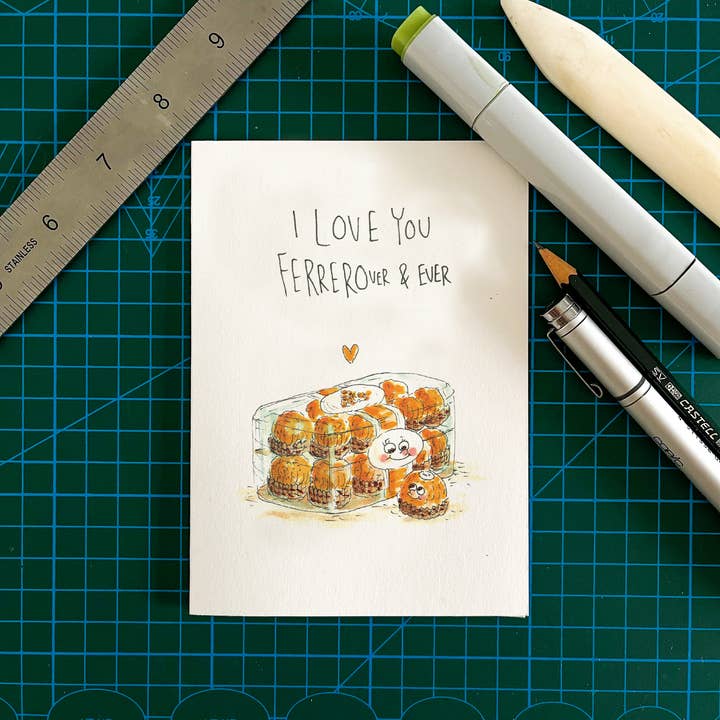 I LOVE YOU
FERREROVER & EVER
9
8
7
6
STAINLESS
CASTELL